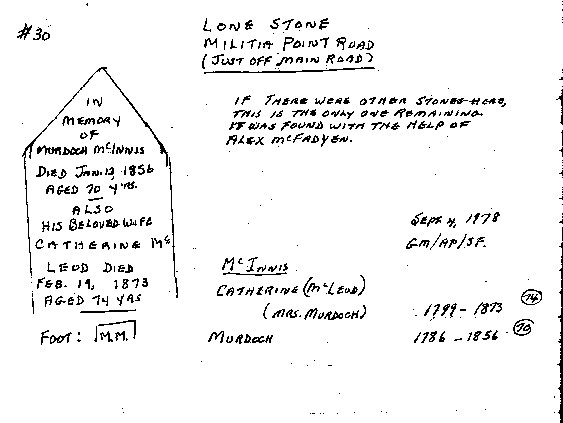 #30
LONE STONE
MILITIA POINT ROAD
(JUST OFF MAIN ROAD)
IN
MEMORY
OF
MURDOCH McINNIS
DIED JAN. 13, 1856
AGED 70 YRS.
ALSO
HIS BELOVED WIFE
CATHERINE Mc
LEOD DIED
FEB. 19, 1873
AGED 74 YRS
FOOT: M.M.
IF THERE WERE OTHER STONES HERE,
THIS IS THE ONLY ONE REMAINING.
IT WAS FOUND WITH THE HELP OF
ALEX McFADYEN.
SEPT 4, 1978
GM/AP/SF.
McINNIS
CATHERINE (McLEOD)
(MRS. MURDOCH) 1799 - 1873 74
MURDOCH 1786 - 1856 70